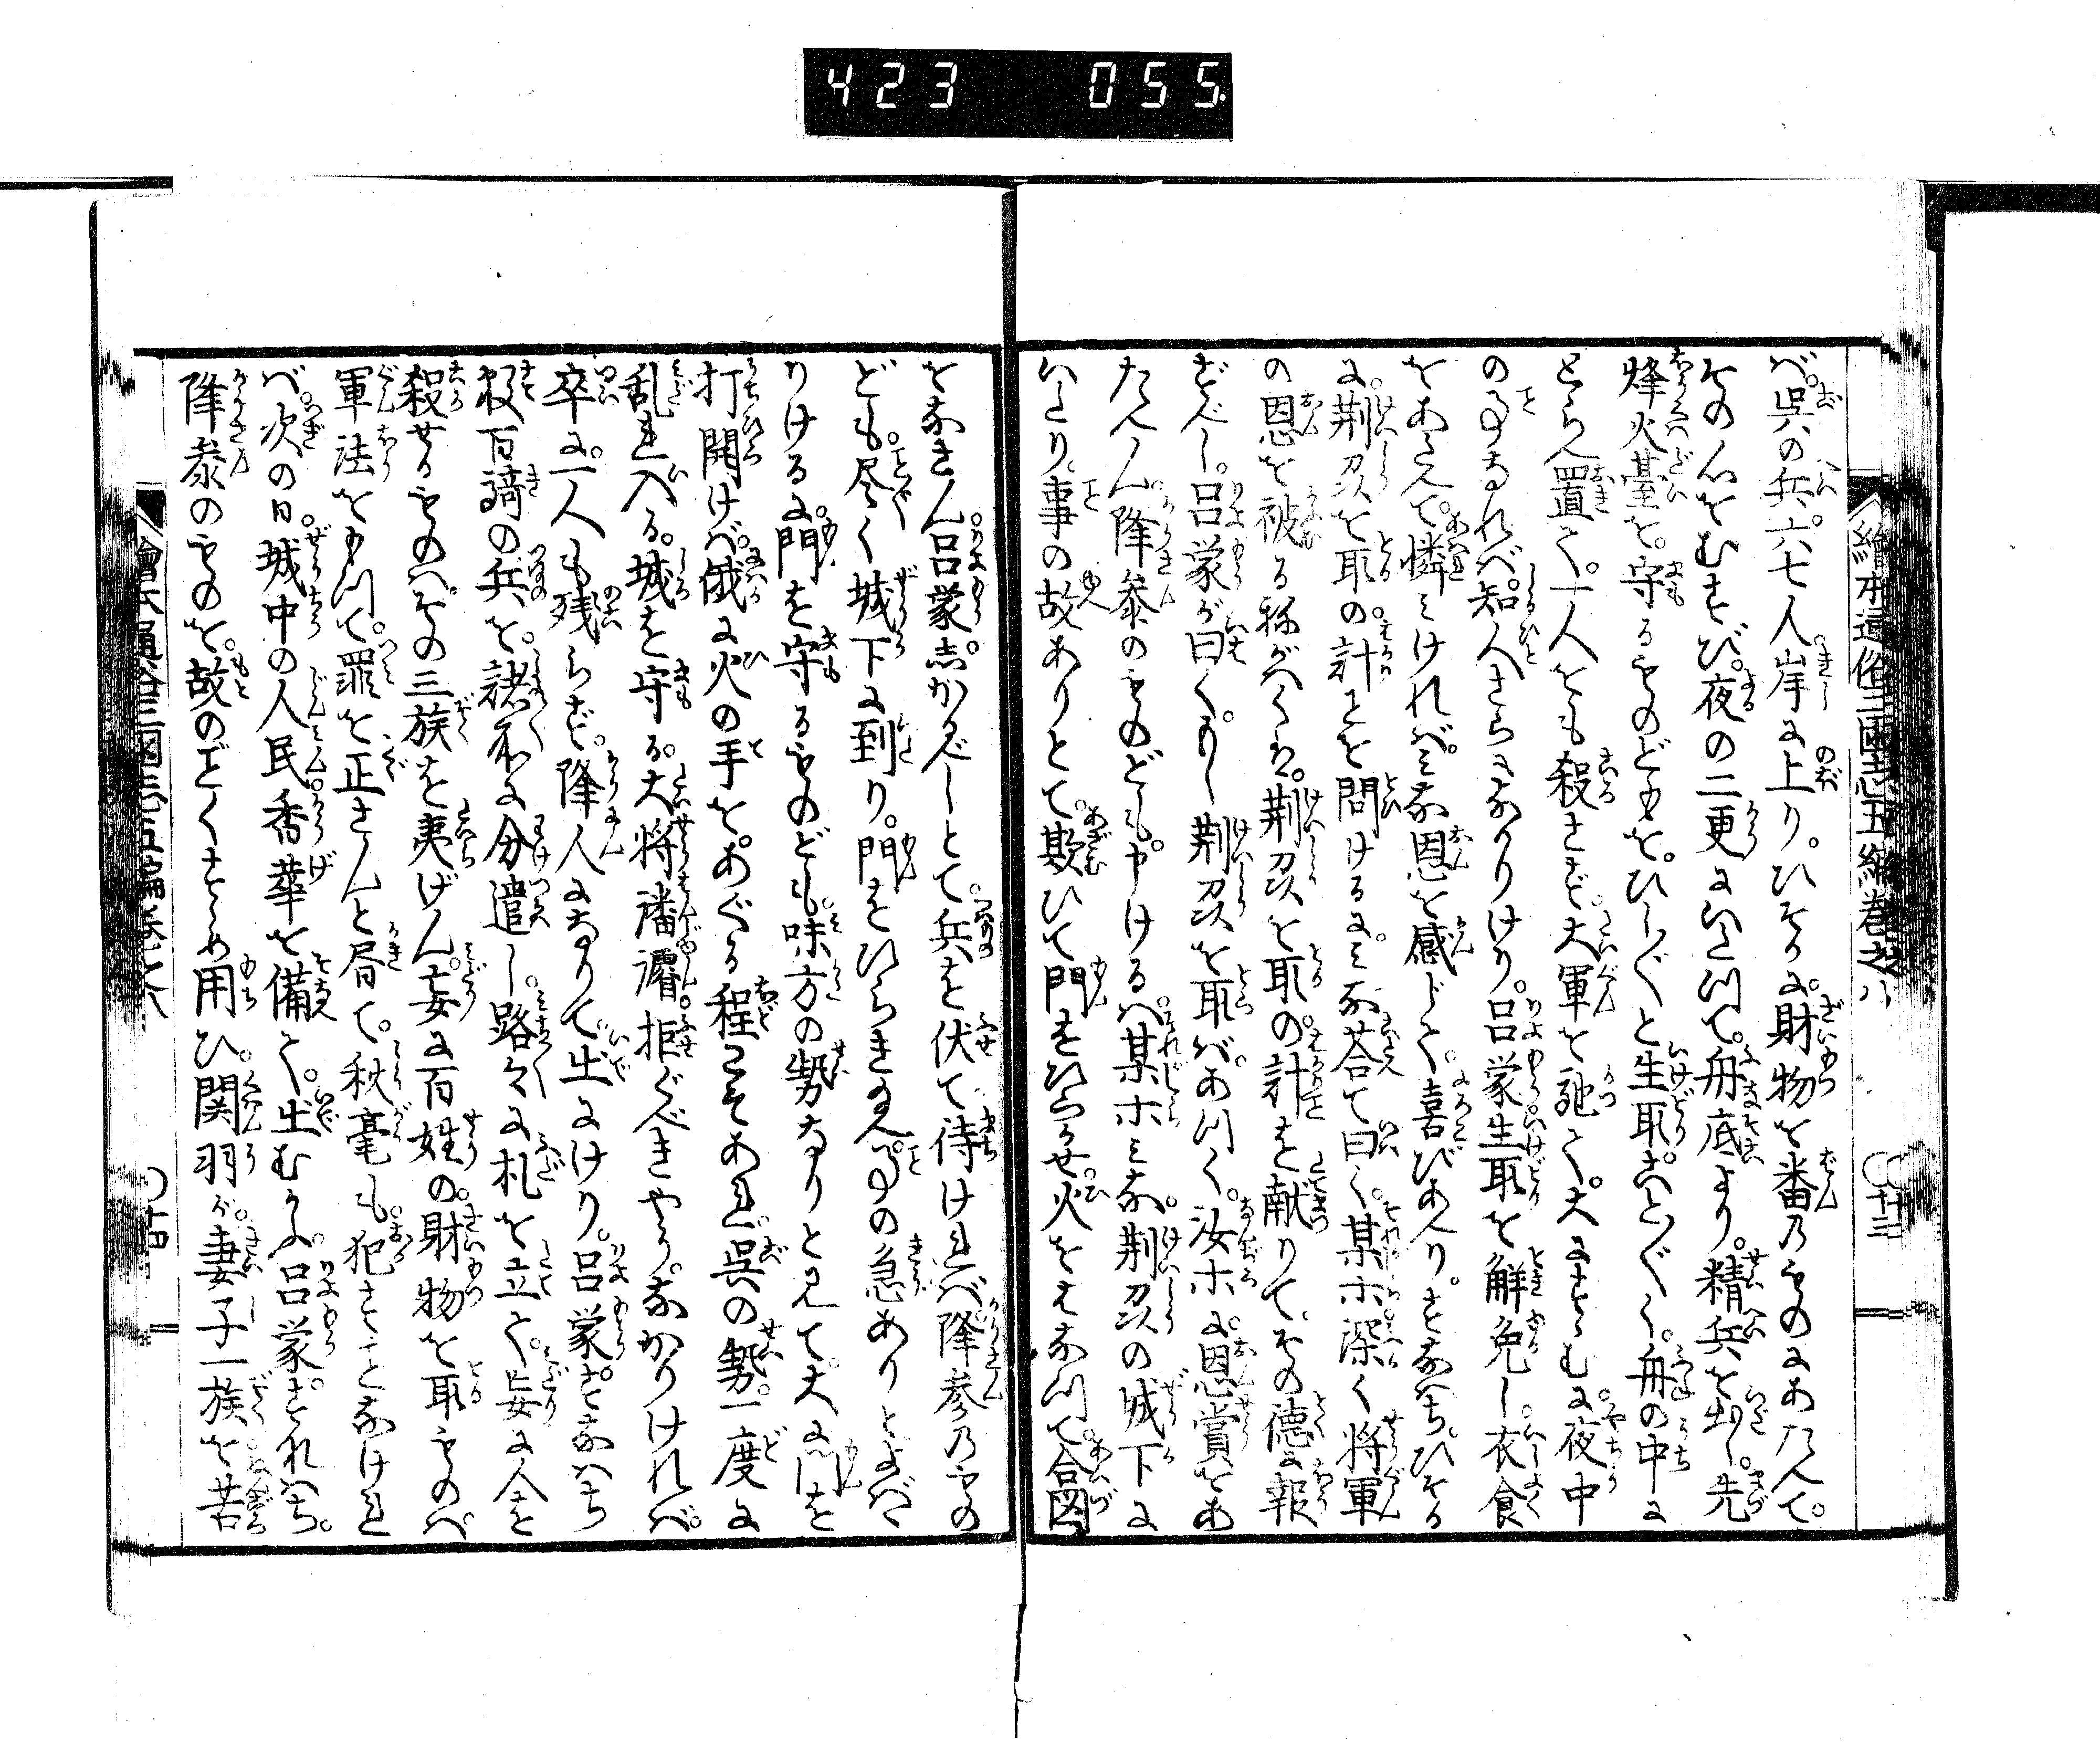 423 055
繪本通俗三國志五編卷之八 〇十三
べ。呉の兵。六七人岸に上り。ひそかに。財物を番のものにあたへて。
その心をむすび。夜の二更にいたつて。舟底より。精兵を出し。先
烽火臺を。守るものどもを。ひし〴〵と生取。こと〴〵く。舟の中に
とらへ置て。一人をも殺さず。大軍を馳て。大にすゝむに。夜中
の事なれば。知人さらになかりけり。呂蒙生取を解免し。衣食
をあたへて。憐みければ。みな恩を感じて。喜びあへり。すなはち。ひそか
に。荊州を取の計ごとを問けるに。みな荅て曰く。某ホ深く将軍
の恩を被る。称がへくは。荊州を取の計を献りて。その徳に報
ずべし。呂蒙が曰く。もし荊州を取ば。あつく。汝ホに。恩賞をあ
たへん。降参のものども。申けるは。某ホみな。荊州の城下に
いたり。事の故ありとて。欺ひて門をひらかせ。火をはなつて。合図
をなさん。呂蒙。志かるべしとて。兵を伏て待ければ。降参のもの
ども。尽く城下に到り。門をひらき玉へ。事の急ありとよばゝ
りけるに。門を守るものども。味方の勢なりと見て。大に門を
打開けば。俄に火の手を。あぐる程こそあれ。呉の勢。一度に
乱れ入る。城を守る。大将潘濬。拒ぐべきやうなかりければ。
卒に。一人も残らず。降人になりて。出にけり。呂蒙すなはち
数百騎の兵を。諸所に分遣し。路々に札を立て。妄に人を
殺せるものは。その三族を夷げん。妄に百姓の。財物を取ものは
軍法をもつて。罪を正さんと。屑て。秋毫も犯すことなければ
ば。次の日。城中の人民香華を備て。出むかふ。呂蒙すなはち。
降叅のものを。故のごとくすゝめ用ひ。関羽が。妻子一族を苦
繪本通俗三國志五編卷之八 〇十四